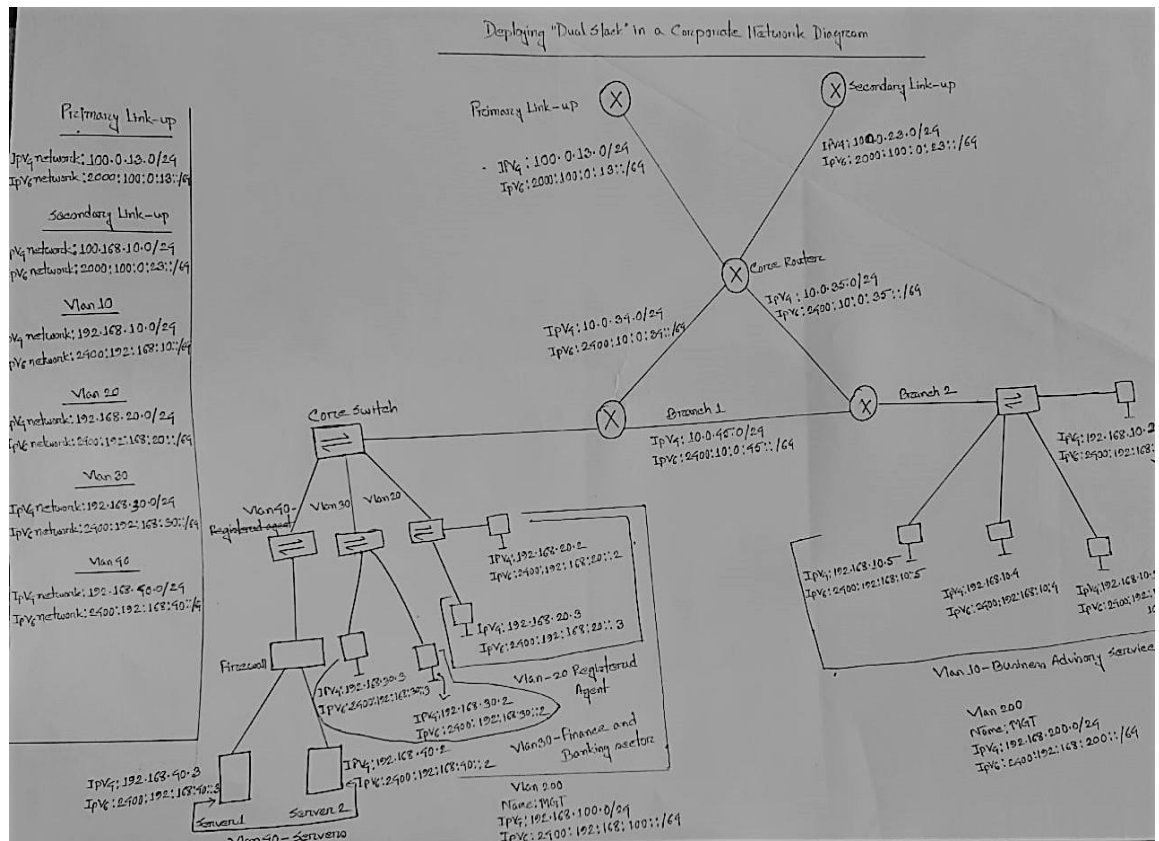 Deploying "Dual Stack" in a Corporate Network Diagram
Primary Link-up
IPv4 network: 100.0.13.0/24
IPv6 network: 2000:100:0:13::/64
Secondary Link-up
IPv4 network: 100.168.10.0/24
IPv6 network: 2000:100:0:23::/64
Vlan 10
IPv4 network: 192.168.10.0/24
IPv6 network: 2400:192:168:10::/64
Vlan 20
IPv4 network: 192.168.20.0/24
IPv6 network: 2400:192:168:20::/64
Vlan 30
IPv4 network: 192.168.30.0/24
IPv6 network: 2400:192:168:30::/64
Vlan 40
IPv4 network: 192.168.40.0/24
IPv6 network: 2400:192:168:40::/64
Primary Link-up
IPv4: 100.0.13.0/24
IPv6: 2000:100:0:13::/64
Secondary Link-up
IPv4: 100.0.23.0/24
IPv6: 2000:100:0:23::/64
Core Router
IPv4: 10.0.34.0/24
IPv6: 2400:10:0:34::/64
IPv4: 10.0.35.0/24
IPv6: 2400:10:0:35::/64
Core Switch
Branch 1
IPv4: 10.0.45.0/24
IPv6: 2400:10:0:45::/64
Branch 2
Vlan 40-
Registered agent
Vlan 30
Vlan 20
IPv4: 192.168.20.2
IPv6: 2400:192:168:20::2
IPv4: 192.168.20.3
IPv6: 2400:192:168:20::3
Vlan-20 Registered
Agent
Firewall
IPv4: 192.168.30.3
IPv6: 2400:192:168:30::3
IPv4: 192.168.30.2
IPv6: 2400:192:168:30::2
Vlan30-Finance and
Banking sector
IPv4: 192.168.40.3
IPv6: 2400:192:168:40::3
Server 1
IPv4: 192.168.40.2
IPv6: 2400:192:168:40::2
Server 2
Vlan 40-Servers
Vlan 200
Name: MGT
IPv4: 192.168.100.0/24
IPv6: 2400:192:168:100::/64
IPv4: 192.168.10.
IPv6: 2400:192:168:
IPv4: 192.168.10.5
IPv6: 2400:192:168:10:5
IPv4: 192.168.10.4
IPv6: 2400:192:168:10:4
IPv4: 192.168.10.
IPv6: 2400:192:
Vlan 10-Business Advisory Service
Vlan 200
Name: MGT
IPv4: 192.168.200.0/24
IPv6: 2400:192:168:200::/64